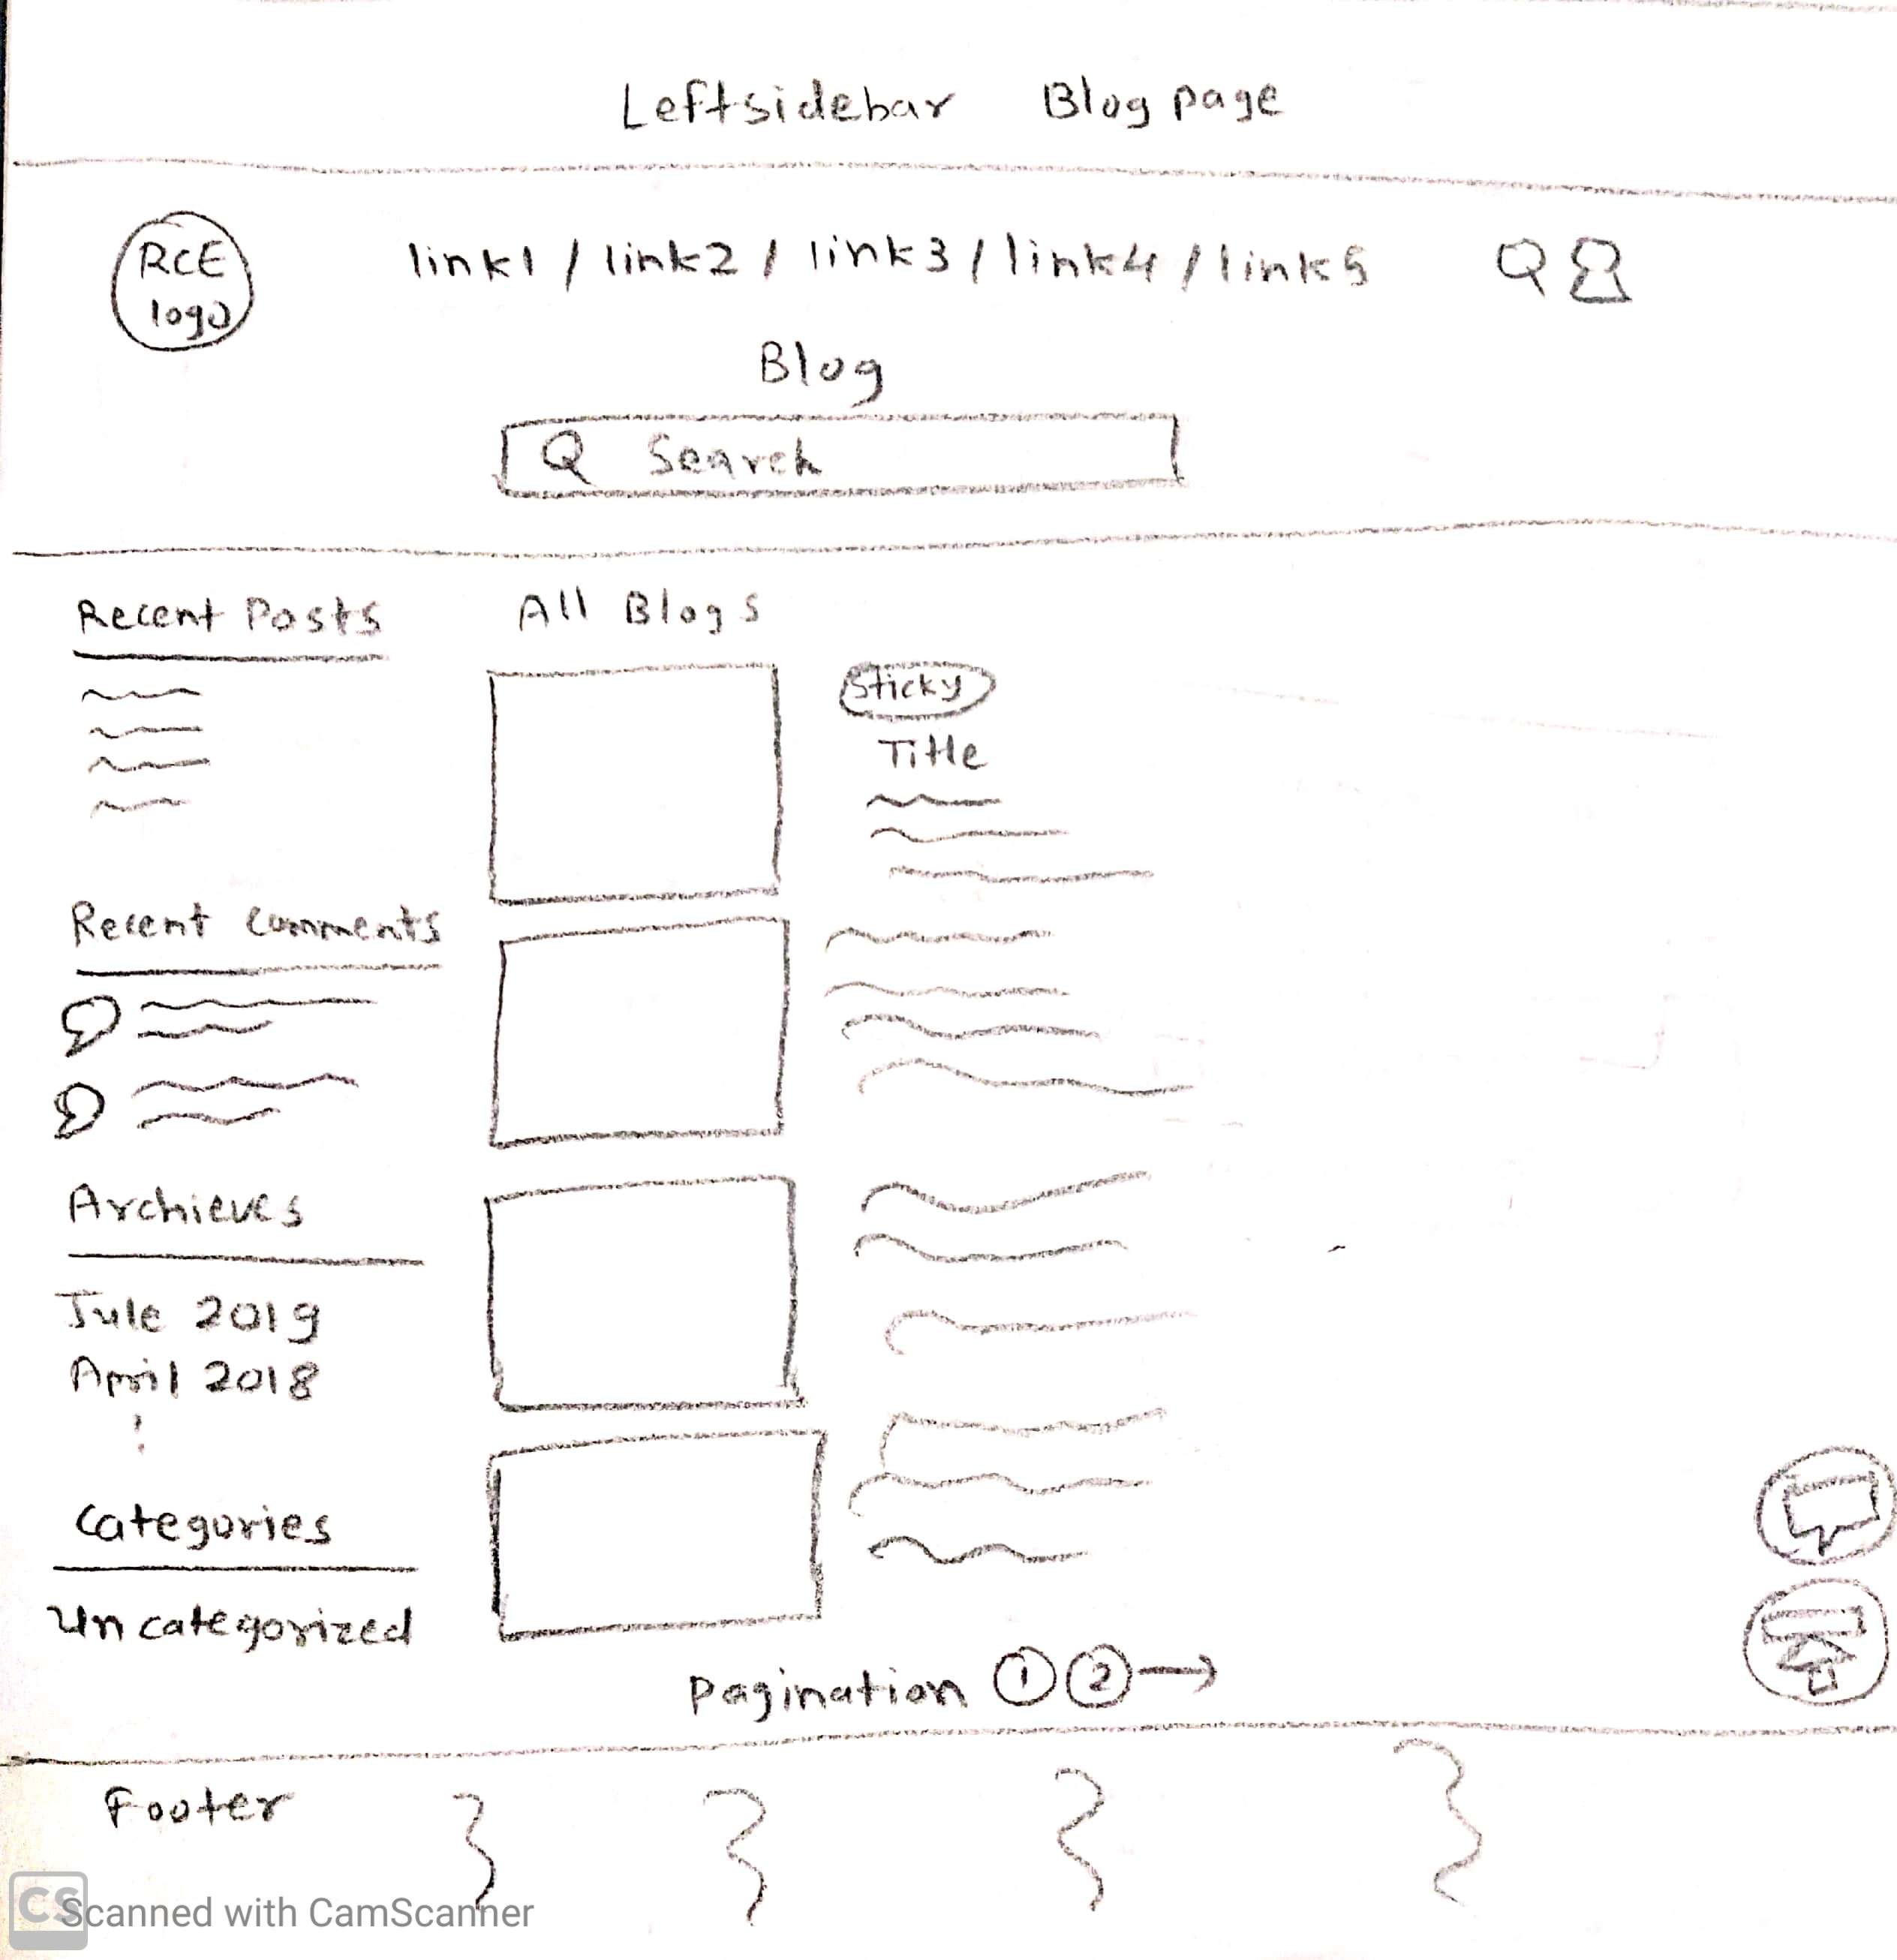 Leftsidebar Blog page
RCE
logo
link1 / link2 / link3 / link4 / link5
Blog
Search
Recent Posts
All Blogs
Sticky
Title
Recent comments
Archieves
Jule 2019
April 2018
Categories
Uncategorized
Pagination 1 2
Footer
CS
Scanned with CamScanner